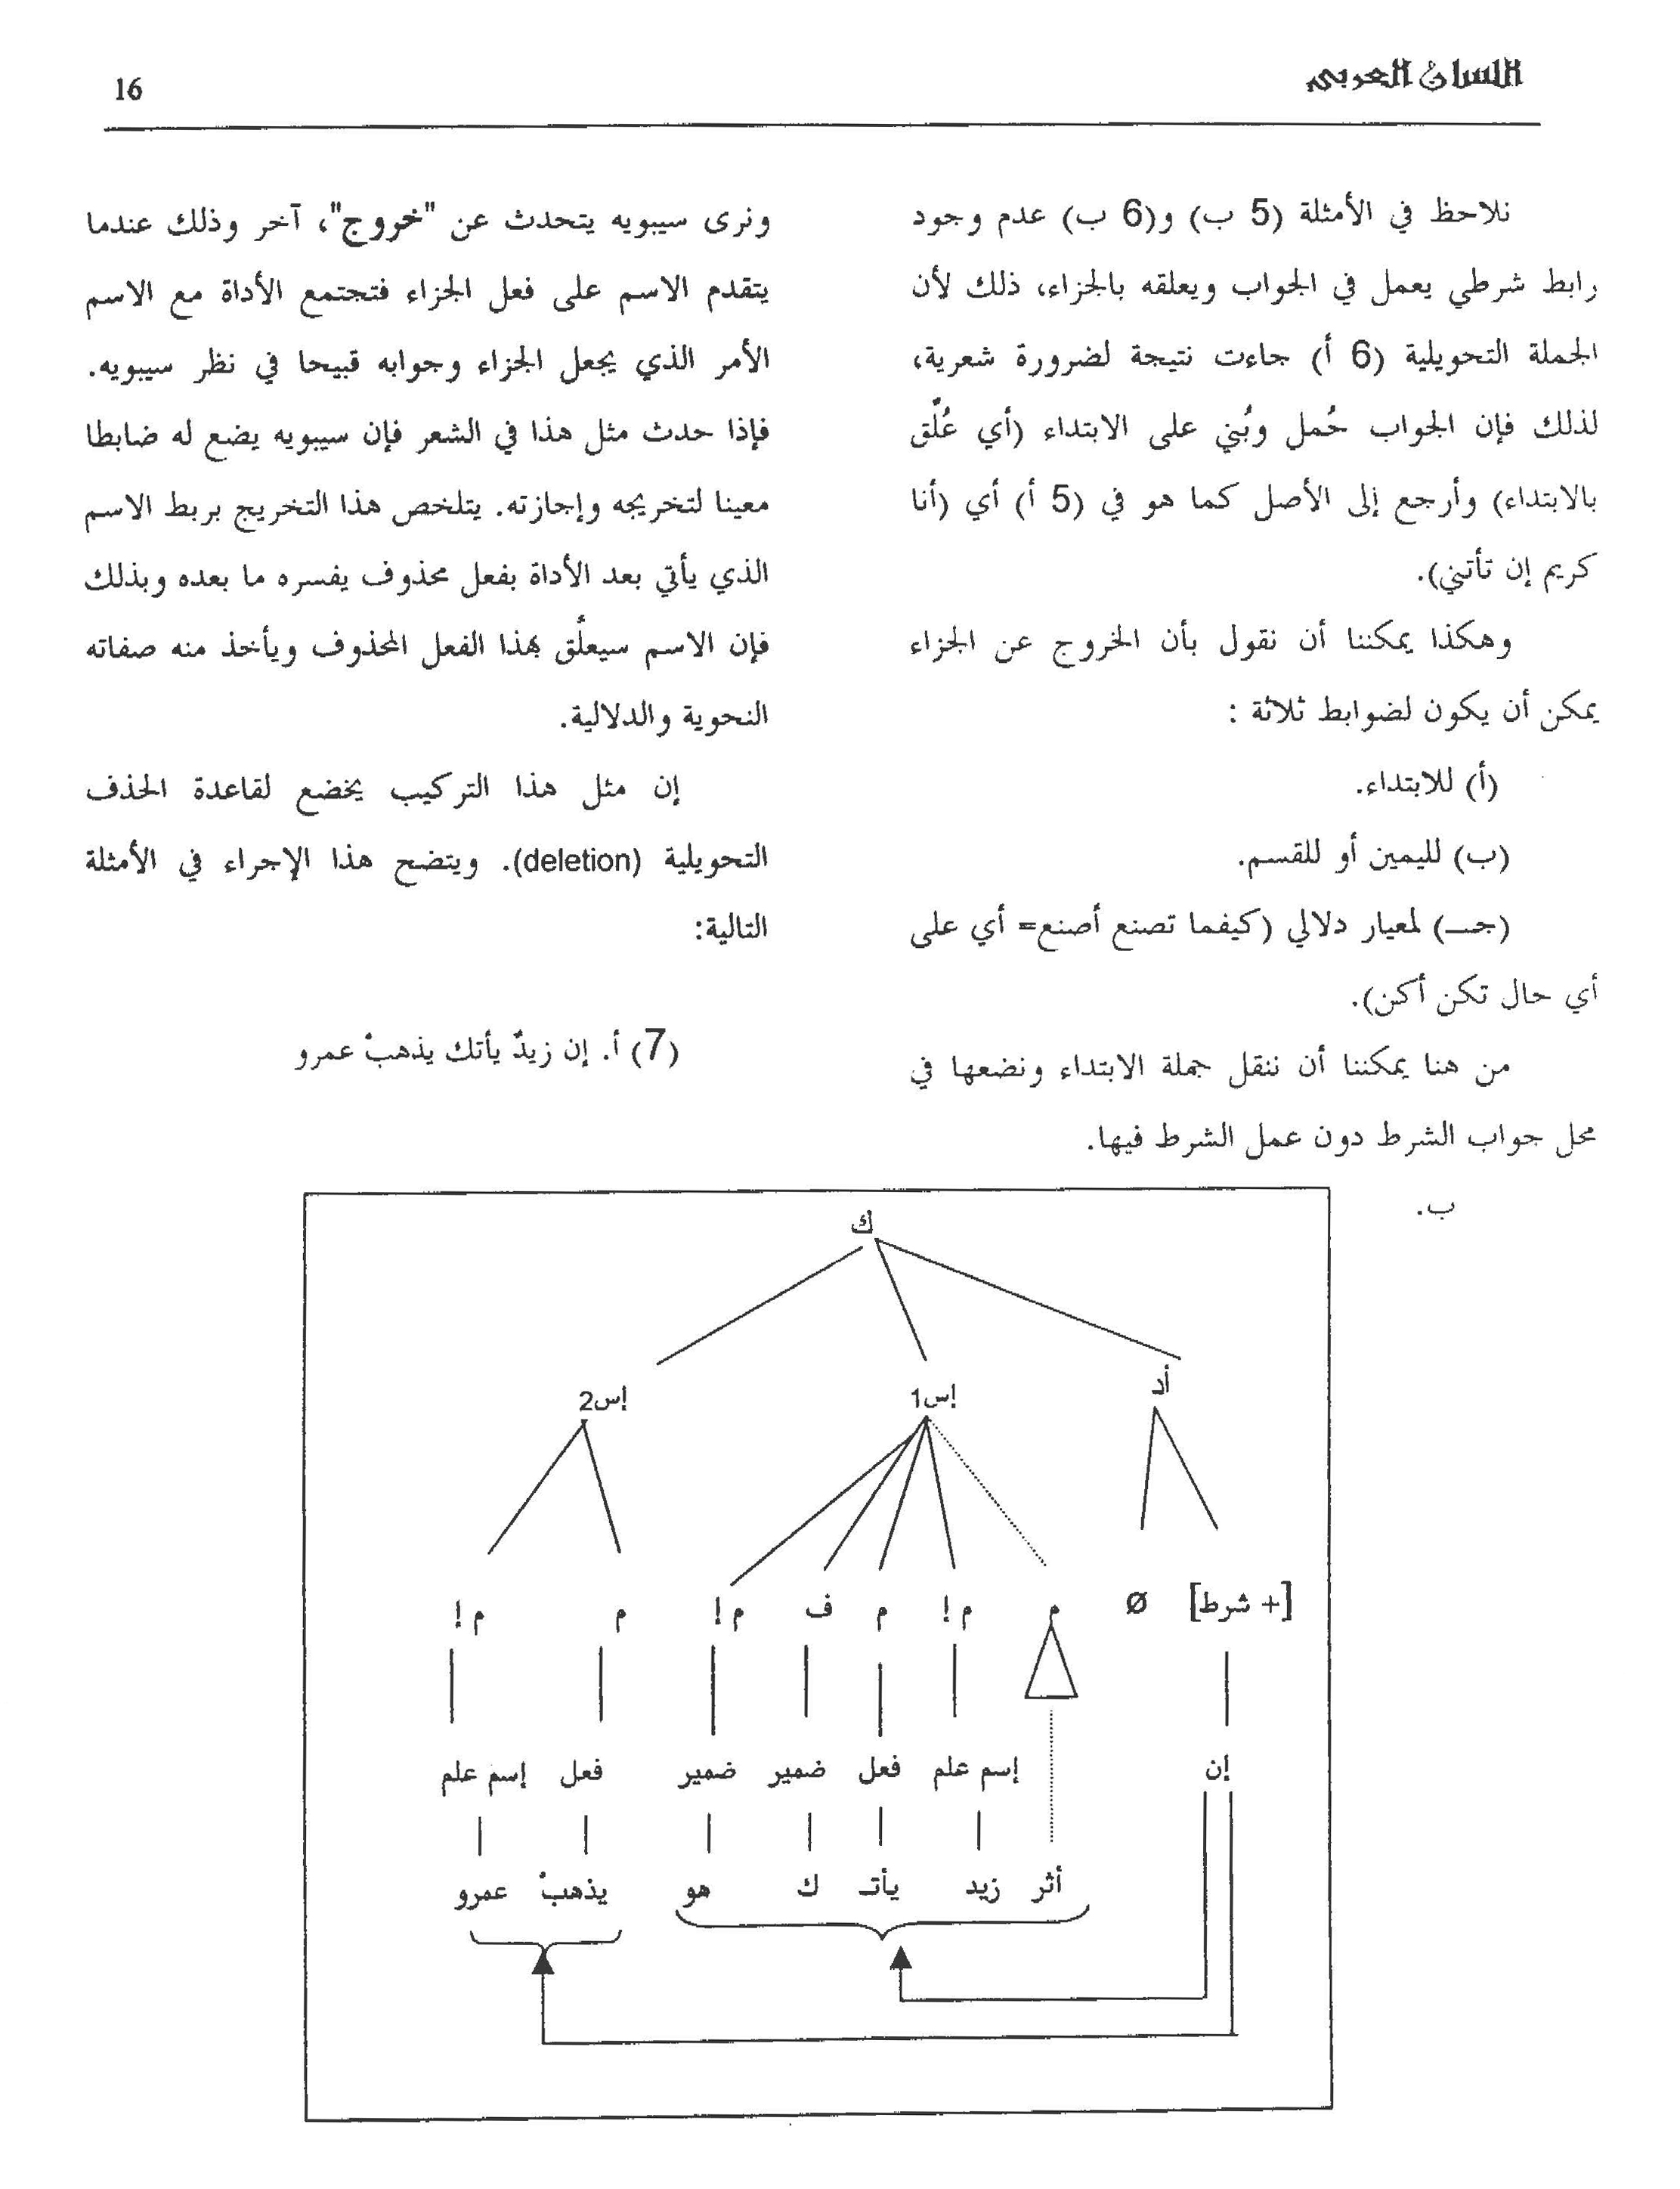 اللسان العربي
16
نلاحظ في الأمثلة (5 ب) و(6 ب) عدم وجود
رابط شرطي يعمل في الجواب ويعلقه بالجزاء، ذلك لأن
الجملة التحويلية (6 أ) جاءت نتيجة لضرورة شعرية،
لذلك فإن الجواب حُمل وبُني على الابتداء (أي عُلّق
بالابتداء) وأرجع إلى الأصل كما هو في (5 أ) أي (أنا
كريم إن تأتني).
وهكذا يمكننا أن نقول بأن الخروج عن الجزاء
يمكن أن يكون لضوابط ثلاثة :
(أ) للابتداء.
(ب) لليمين أو للقسم.
(جـــ) لمعيار دلالي (كيفما تصنع أصنع= أي على
أي حال تكن أكن).
من هنا يمكننا أن ننقل جملة الابتداء ونضعها في
محل جواب الشرط دون عمل الشرط فيها.
ونرى سيبويه يتحدث عن "خروج"، آخر وذلك عندما
يتقدم الاسم على فعل الجزاء فتجتمع الأداة مع الاسم
الأمر الذي يجعل الجزاء وجوابه قبيحا في نظر سيبويه.
فإذا حدث مثل هذا في الشعر فإن سيبويه يضع له ضابطا
معينا لتخريجه وإجازته. يتلخص هذا التخريج بربط الاسم
الذي يأتي بعد الأداة بفعل محذوف يفسره ما بعده وبذلك
فإن الاسم سيعلَّق بهذا الفعل المحذوف ويأخذ منه صفاته
النحوية والدلالية.
إن مثل هذا التركيب يخضع لقاعدة الحذف
التحويلية (deletion). ويتضح هذا الإجراء في الأمثلة
التالية:
(7) أ. إن زيدٌ يأتك يذهبْ عمرو
ب.
ك
أد إس1 إس2
[+ شرط] Ø م م إ م ف م إ م م إ
إن إسم علم فعل ضمير ضمير فعل إسم علم
أثر زيد يأتـ ك هو يذهبْ عمرو